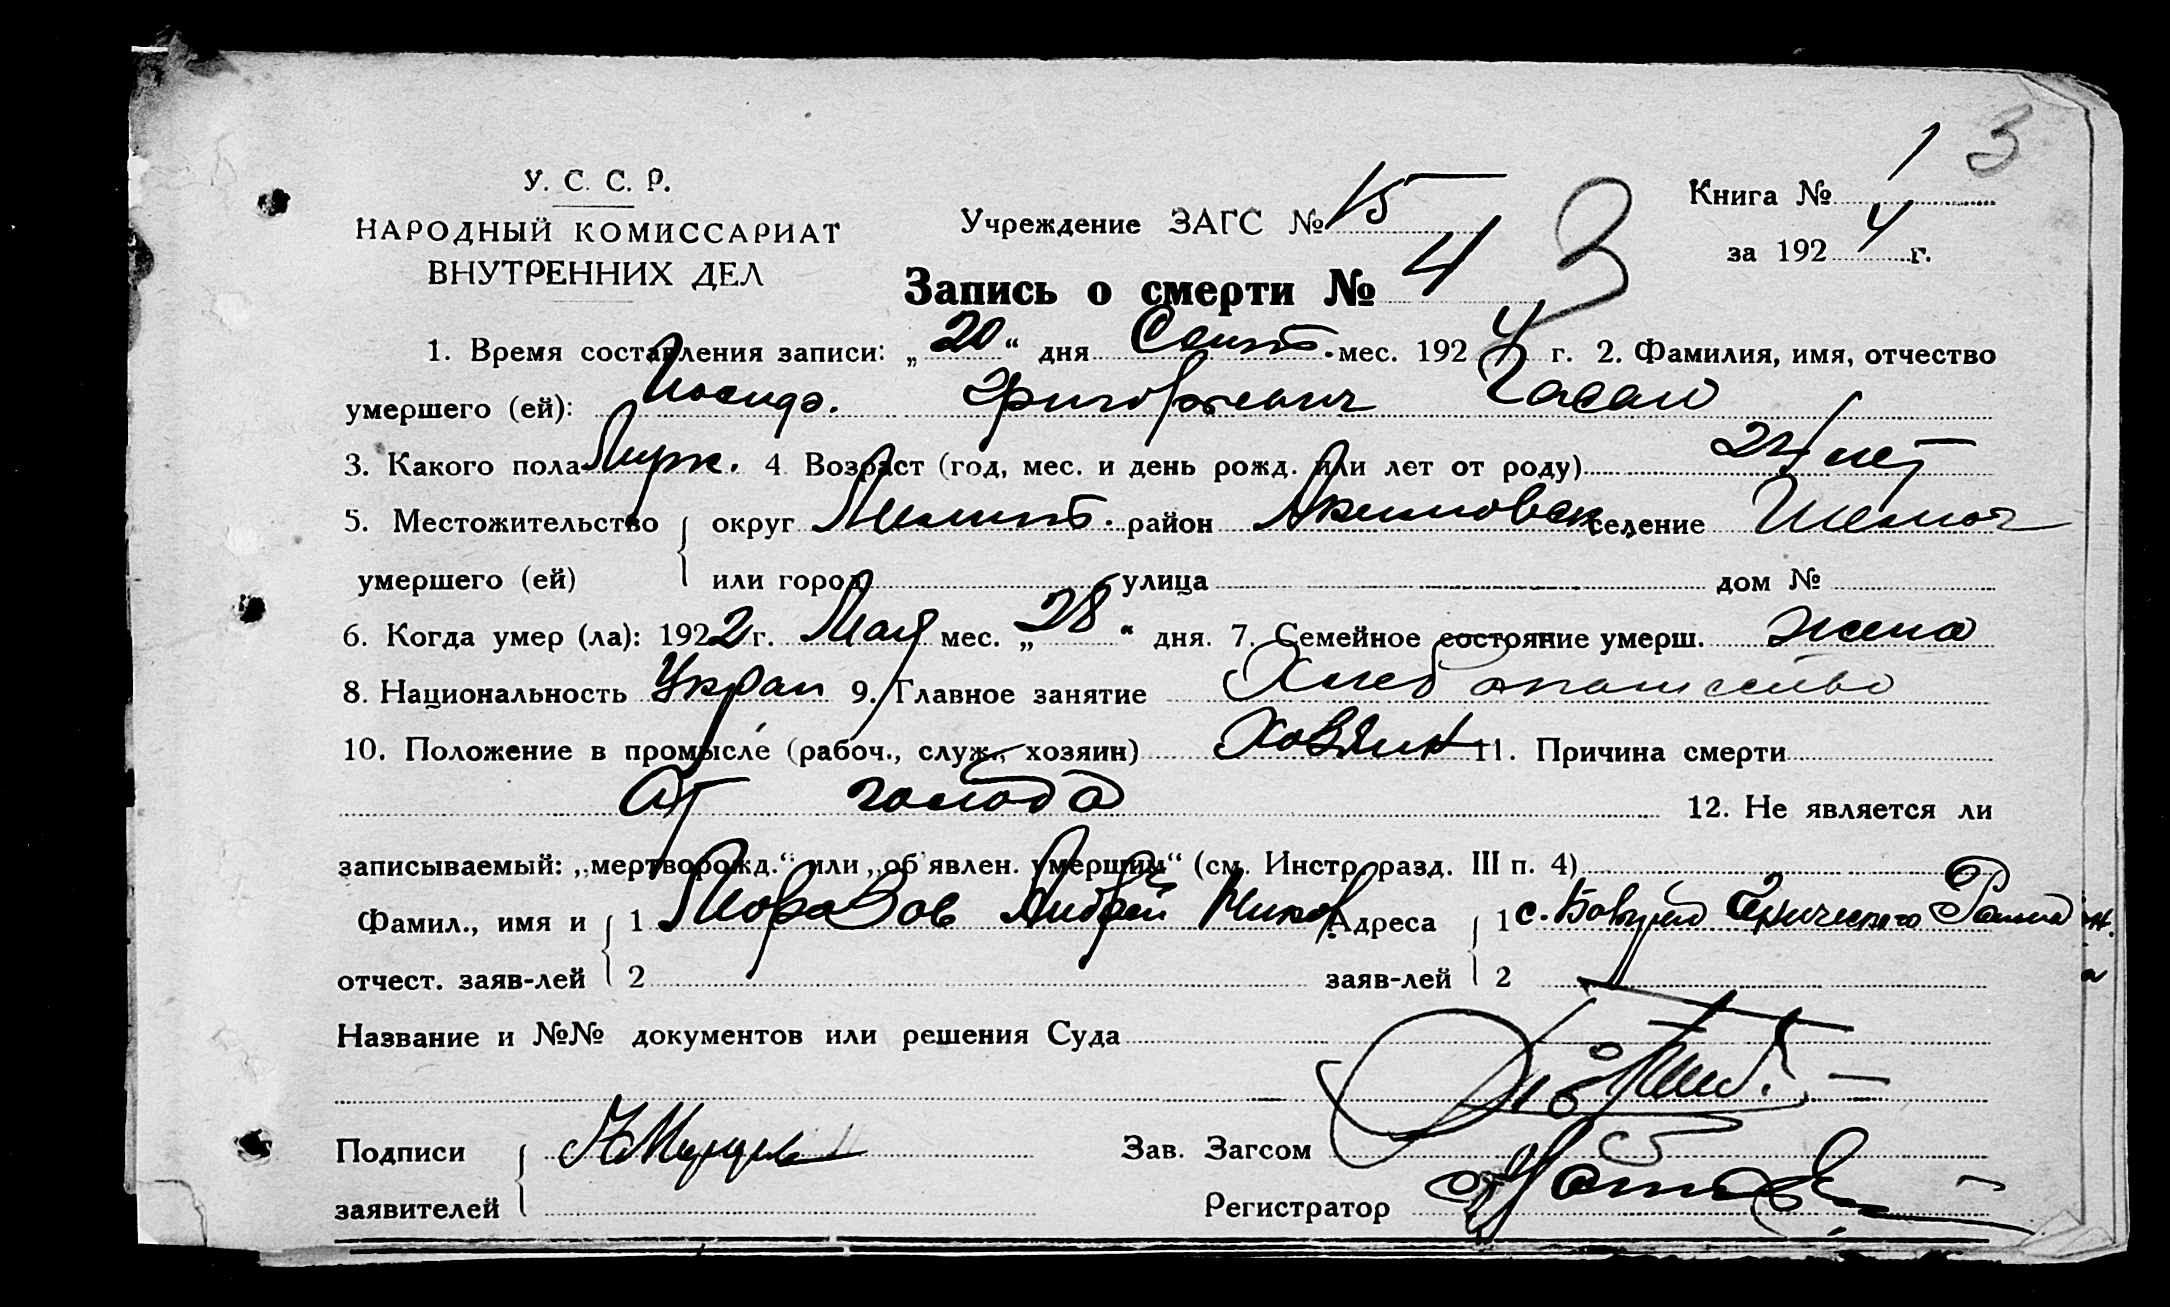 1 3
У. С. С. Р.
НАРОДНЫЙ КОМИССАРИАТ
ВНУТРЕННИХ ДЕЛ
Учреждение ЗАГС № 15
Книга № 1
за 1924 г.
Запись о смерти № 4 3
1. Время составления записи: „20“ дня Сент. мес. 1924 г. 2. Фамилия, имя, отчество
умершего (ей): Григорьевич
3. Какого пола Муж. 4 Возраст (год, мес. и день рожд. или лет от роду) лет
5. Местожительство округ Мелит. район Акимовск селение
умершего (ей) или город улица дом №
6. Когда умер (ла): 1922 г. Мая мес. „28“ дня. 7. Семейное состояние умерш. жена
8. Национальность Украин 9. Главное занятие Хлебопашество
10. Положение в промысле (рабоч., служ., хозяин) Хозяин 11. Причина смерти
От голода 12. Не является ли
записываемый: „мертворожд.“ или „об'явлен. умершим“ (см. Инстр. разд. III п. 4)
Фамил., имя и 1 Андрей Адреса 1 с. Генического Района
отчест. заяв-лей 2 заяв-лей 2
Название и №№ документов или решения Суда
Подписи Зав. Загсом
заявителей Регистратор